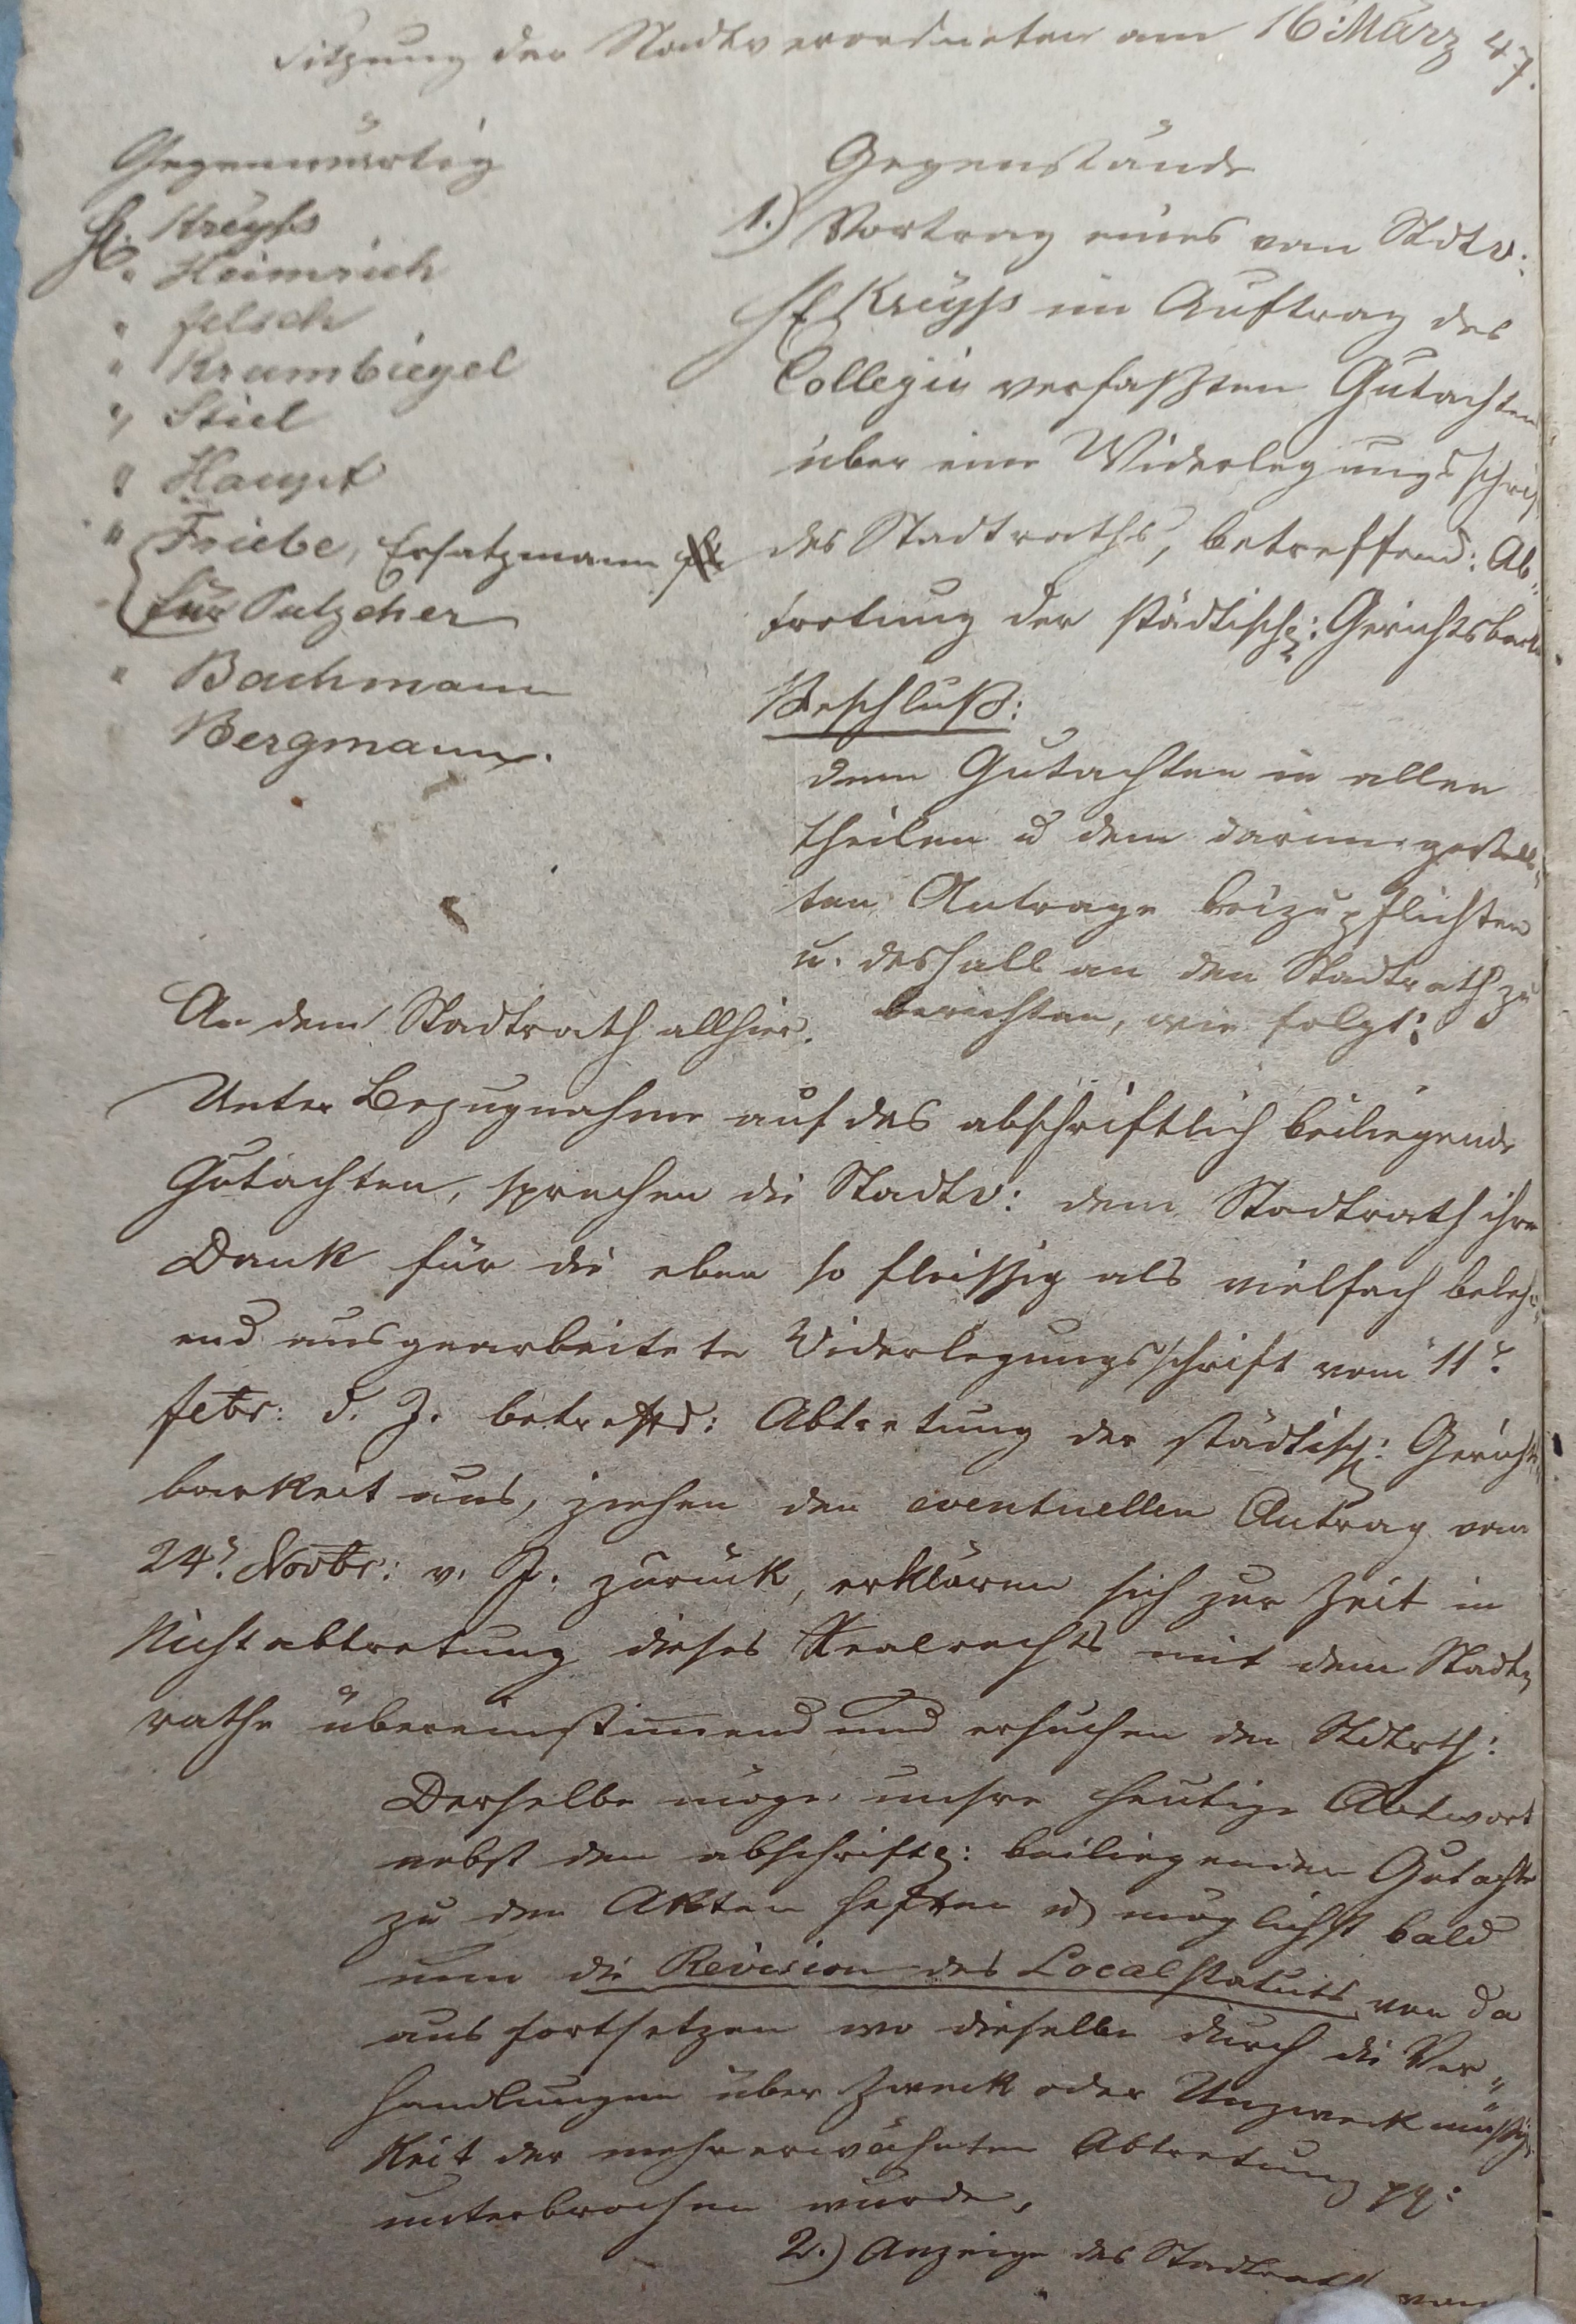 Sitzung der Stadtverordneten am 16 März 47.
Gegenwärtig
H. Kreyß
" Heimrich
" Felsch
" Krumbiegel
" Stiel
" Haupt
" Friebe, Ersatzmann
für Putzcher
" Bachmann
Bergmann.
Gegenstände
1.) Vortrag eines von Stdtv:
H Kreyß im Auftrag des
Collegii verfaßten Gutachten
über eine Widerlegungsschrift
des Stadtraths, betreffend: Ab„
tretung der städtisch: Gerichtsbark
Beschluß:
dem Gutachten in allen
Theilen u dem darinn gestell„
ten Antrage beizupflichten
u. deshalb an den Stadtrath zu
berichten, wie folgt:
An dem Stadtrath allhier.
Unter Bezugnahme auf das abschriftlich beiliegende
Gutachten, sprechen die Stadtv: dem Stadtrath ihren
Dank für die eben so fleissig als vielfach beleh„
end ausgearbeitete Widerlegungsschrift vom 11.
Febr: d. J. betreffd: Abtretung der städtisch: Gerichts„
barkeit aus, ziehen den eventuellen Antrag vom
24. Novbr: v. J. zurück, erklären sich zur Zeit in
Nichtabtretung dieses Realrechts mit dem Stadt„
rathe übereinstimmend und ersuchen den Stdtrth:
Derselbe möge unsre heutige Antwort
nebst den abschriftl: beiliegenden Gutachten
zu den Akten heften u möglichst bald
nun die Revision des Localstatuts von da
aus fortsetzen wo dieselbe durch die Ver„
handlungen über Zweck oder Unzweckmäßig„
keit der mehrerwähnten Abtretung pp:
unterbrochen wurde.
2.) Anzeige des Stadtrath vom